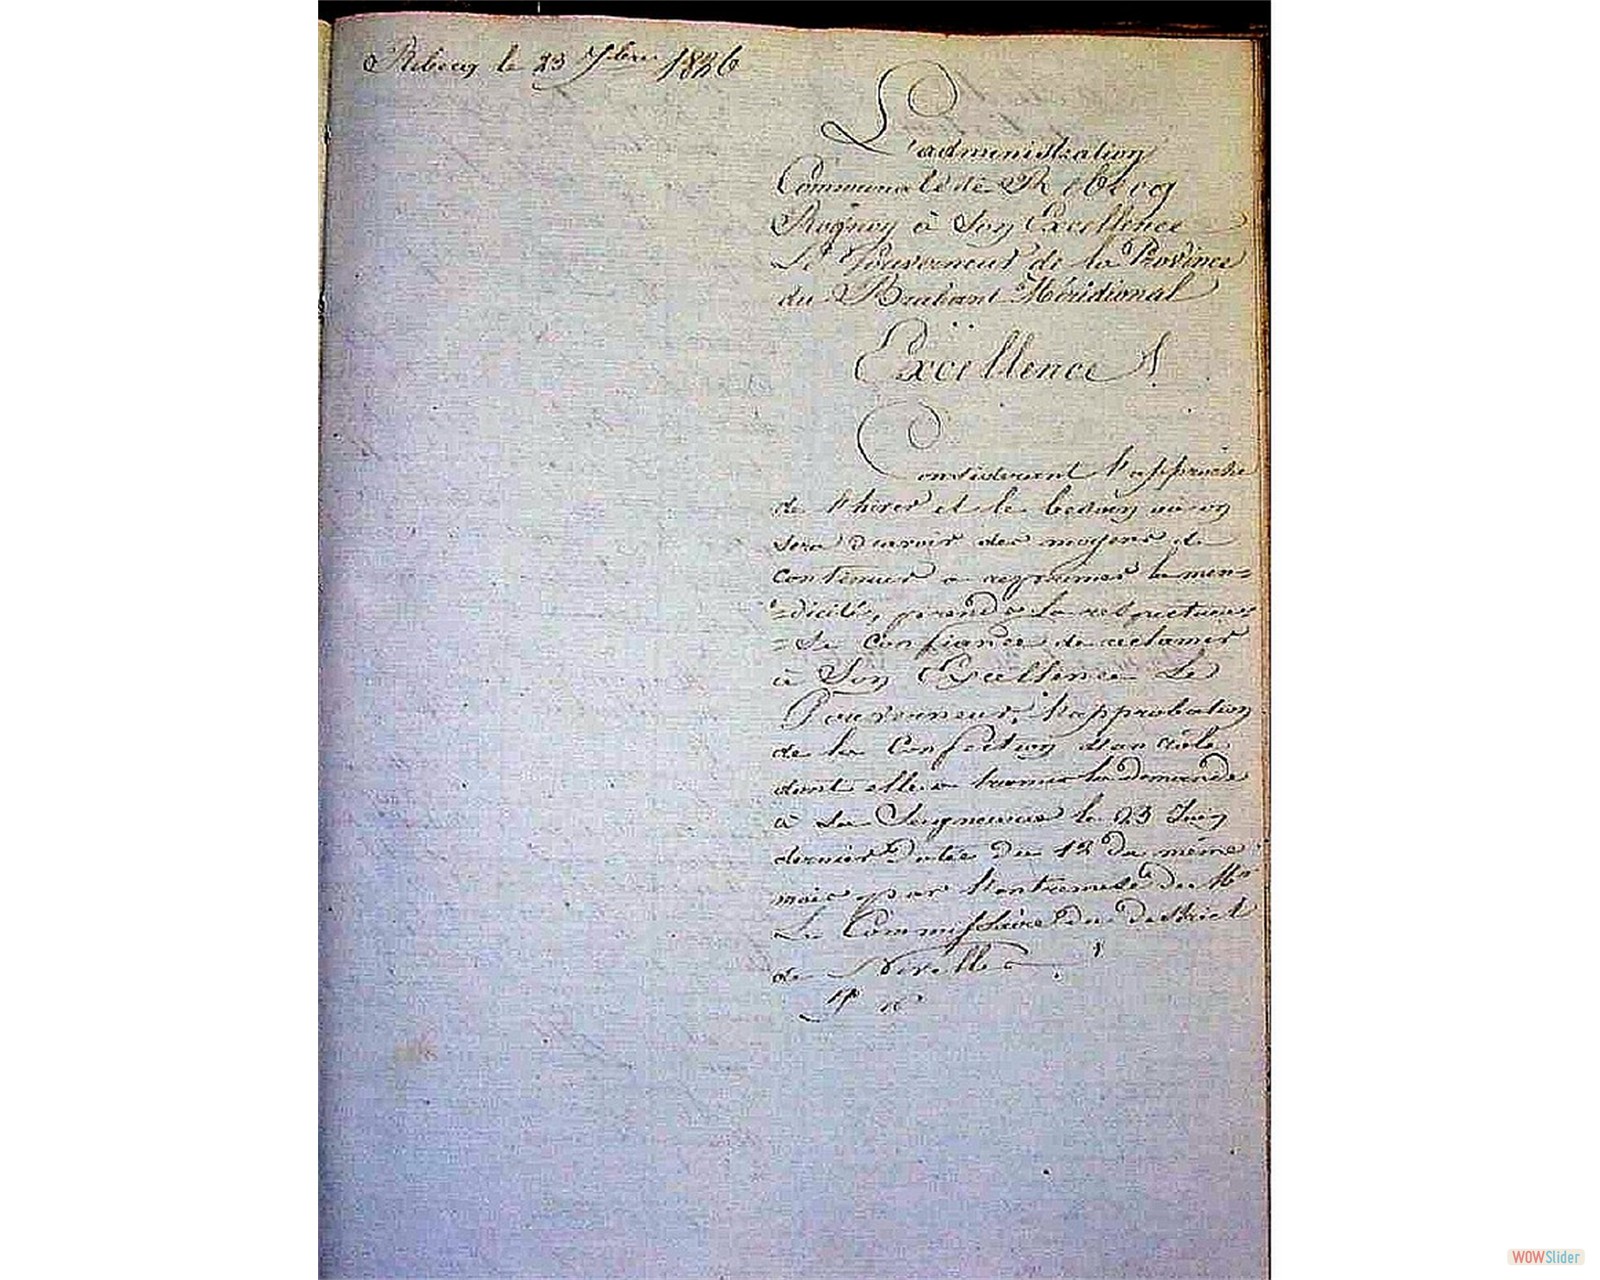 Rebecq le 23 7bre 1826
L'administration
Communale de Rebecq
Rognon à Son Excellence
Le Gouverneur de la Province
du Brabant Méridional
Excellence !
Considerant l'approche
de l'hiver et le besoin qu'on
sera d'avoir des moyens de
continuer a reprimer la men=
=dicité, prend la respectueu=
=se confiance de reclamer
à Son Excellence Le
Gouverneur, l'approbation
de la Confection d'un
dont elle a la demande
à Sa Seigneurie le 23 Juin
dernier datée du 12 du même
mois par l'entremise de Mr
Le Commissaire du district
de Nivelles